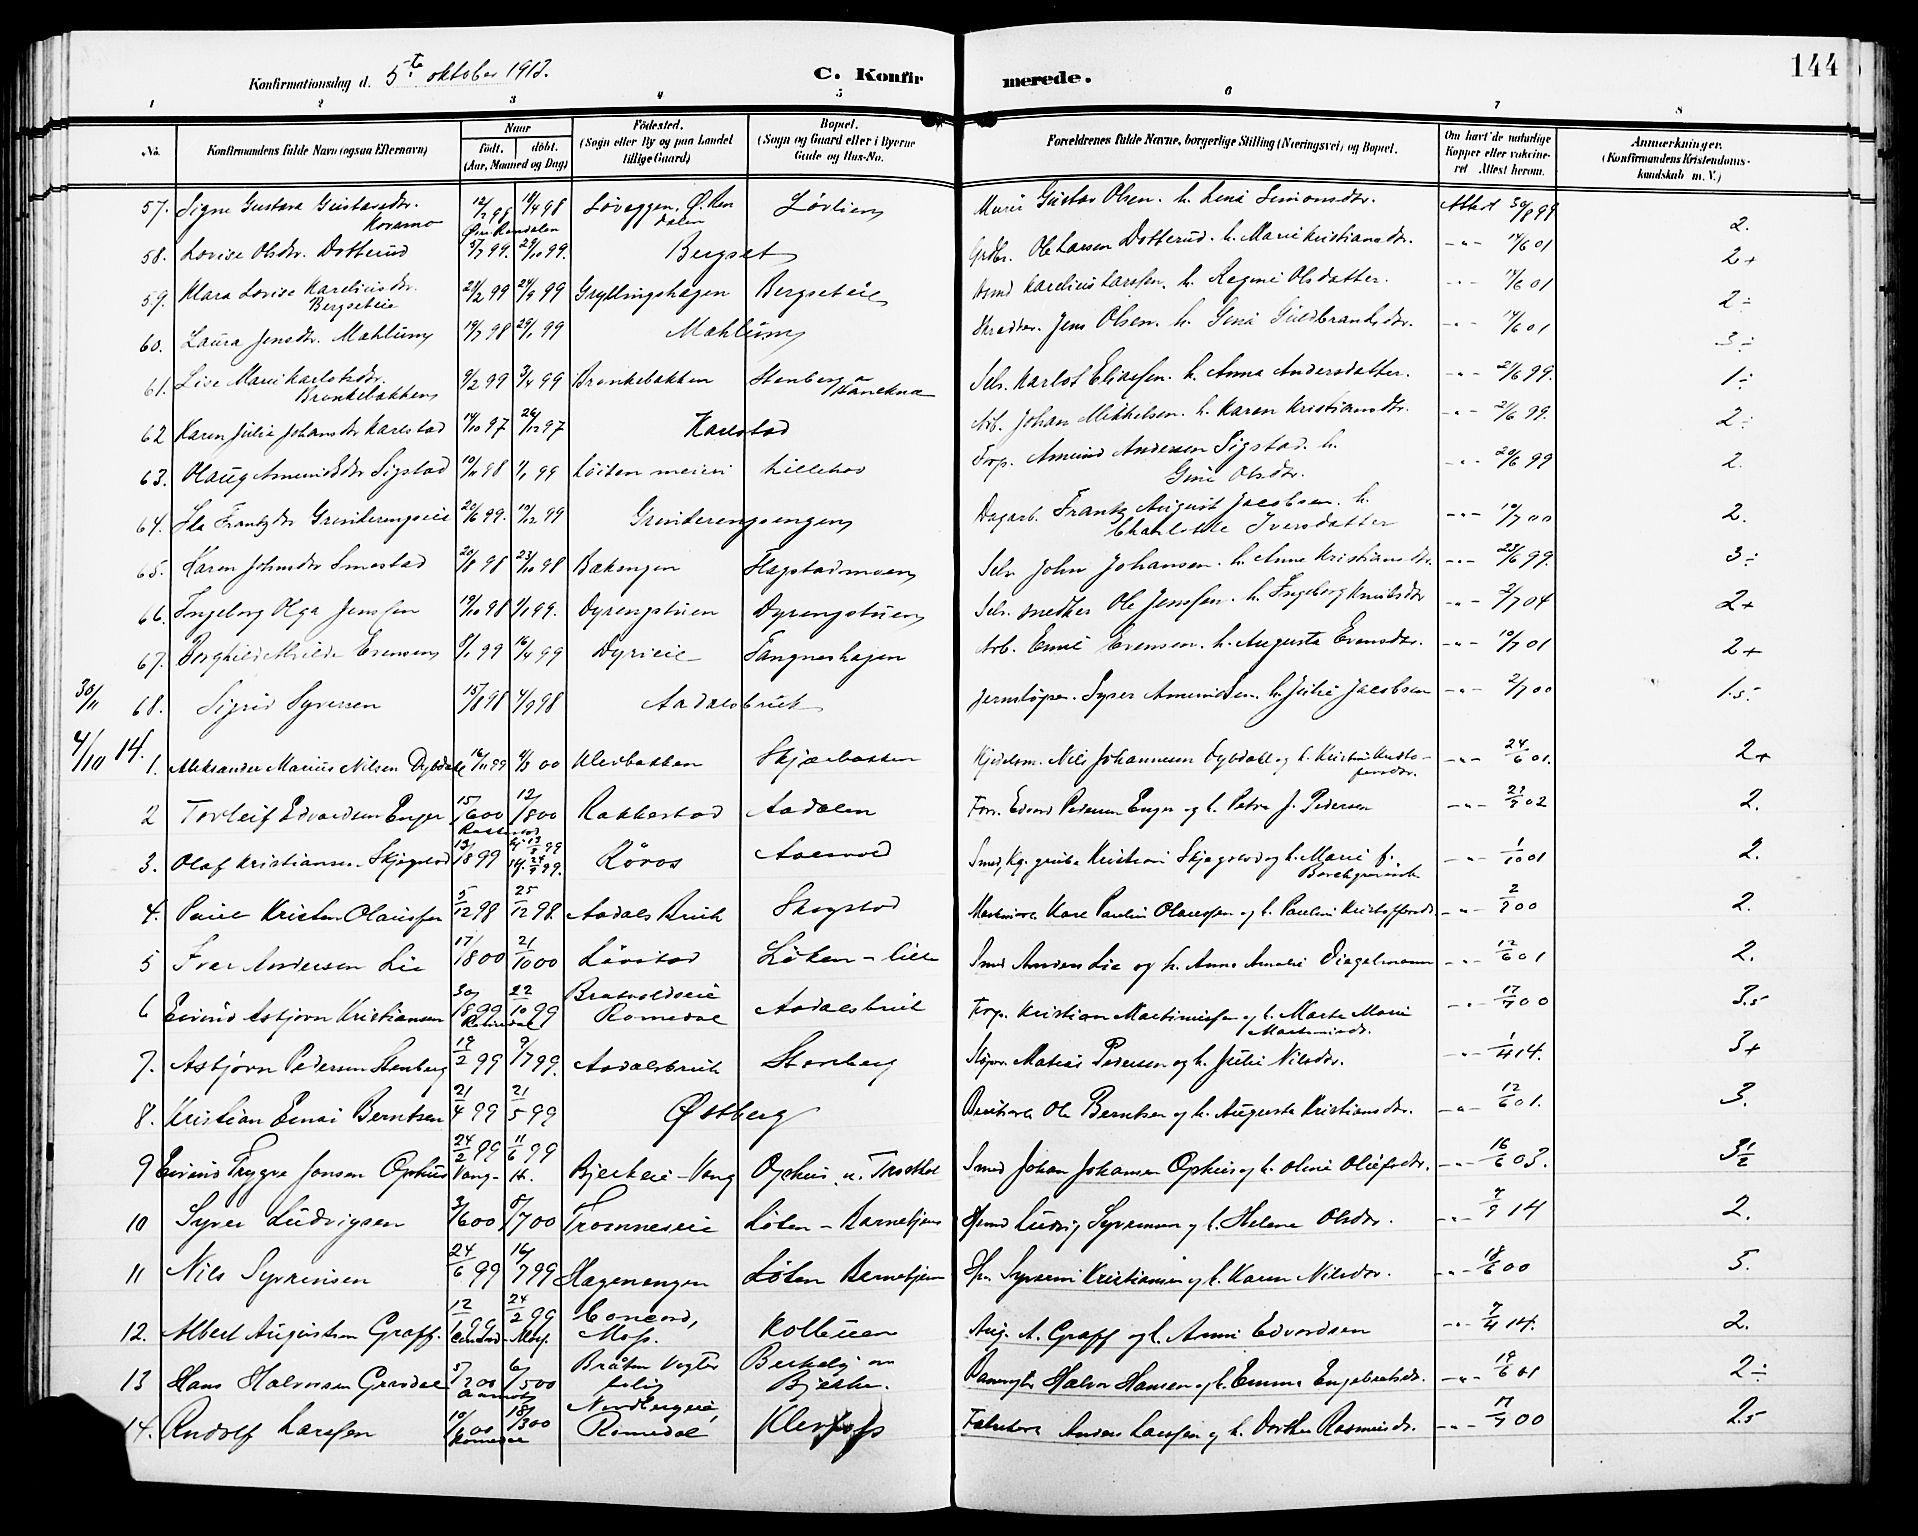 144
Konfirmationsdag d. 5te oktober 1913.
C. Konfirmerede.
1 2 3 4 5 6 7 8
No.
Konfirmandens fulde Navn (ogsaa Efternavn)
Naar
født. døbt.
(Aar, Maaned og Dag)
Fødested.
(Sogn eller By og paa Landet tillige Gaard)
Bopæl.
(Sogn og Gaard eller i Byerne Gade og Hus-No.
Forældrenes fulde Navne, borgerlige Stilling (Næringsvei) og Bopæl.
Om havt de naturlige Kopper eller vakcineret Attest herom.
Anmærkninger.
(Konfirmandens Kristendomskundskab m. V.)
57. Signe Gustava Gustavsdtr. Koramo 12/7 98 10/4 98 Løvaggen. Ø. Rendalen Løvlien Murer Gustav Olsen. h. Lena Simonsdtr. Attest 30/8 99 2.
Øvre Rendalen
58. Lovise Olsdtr. Dotterud 5/7 99. 29/10 99. Bergset Grdbr. Ole Larsen Dotterud. h. Marie Kristiansdtr. -"- 14/6 01 2+
59. Klara Lovise Kareliusdtr. Bergseteie 21/2 99 24/9 99 Gryllingshagen Bergseteie Karelius Larssen. h. Regine Olsdatter. -"- 14/6 01 2÷
60. Laura Jensdtr. Mahlum 19/7 98 29/1 99 Mahlum Skrædder. Jens Olsen. h. Gina Guldbrandsdtr. -"- 14/6 01 3÷
61. Lise Marie Karlotsdtr. Brenkebakken 9/2 99 3/4 99 Brenkebakken Stenberg Selv. Karlot Eliassen. h. Anna Andersdatter. -"- 21/6 99. 1÷
62 Karen Julie Johansdtr Karlstad 14/10 97 26/12 97 Karlstad Arb. Johan Mikkelsen. h. Karen Kristiansdtr. -"- 21/6 99. 2÷
63. Olaug Amundsdtr Sigstad 10/11 98 1/1 99 Løiten meieri Lillehov Frop. Amund Andersen Sigstad. h. Gina Olsdtr. -"- 20/6 99 2.
64. Ida Frantzdtr Grinderengseie 20/6 99. 10/12 99 Grinderengsengen Dagarb. Frantz August Jacobsen. h. Charlotte Iversdatter -"- 10/7 00 2.
65. Karen Johnsdtr Smestad 20/8 98 23/10 98 Bakengen Flagstadmoen Selv. John Johansen. h. Anne Kristiansdtr. -"- 23/6 99. 3÷
66. Ingeborg Olga Jenssen 19/10 98 1/1 99. Dyrengstuen Dyrengstuen Selv. snedker Ole Jenssen. h. Ingeborg Knutsdtr -"- 2/7 04 2+
67. Borghild Milda Evensen 8/1 99 16/4 99 Dyrieie Fangneshagen Arb. Emil Evensen. h. Augusta Evensdtr. -"- 10/7 01 2+
30/11 68. Sigrid Syversen 15/8 98 4/9 98 Aadalsbruk Jernstøper. Syver Amundsen. h. Julie Jacobsen -"- 2/7 00 1.5-
4/10 14.
1. Aleksander Marius Nilsen Dybdahl 16/11 99 4/3 00 Klevbakken Skjærbakken Kjedelsm. Nils Johannesen Dybdahl og h. Kristine Kristofersdtr. -"- 24/6 01. 2+
2 Torleif Edvardsen Enger 15/6 00 12/8 00 Rakkestad Aadalen Forr. Edvard Pedersen Enger og h. Petra J. Pedersen -"- 21/7 02 2.
Rakkestad
3. Olaf Kristiansen Skjegstad 13/8 99 Røros Smed, Kristian Skjegstad og h. Marie f. -"- 1/10 01 2.
4. Paul Kristen Olaussen 5/12 98 25/12 98. Aadals Bruk Skogstad Karl Paulin Olaussen og h. Pauline Kristoffersdtr. -"- 2/7 00 2.
5 Ivar Andersen Lie 17/8 00 21/10 00 Løvstad Løken - lille Smed Anders Lie og h. Anna Amalie -"- 12/6 01 2.
6 Eivind Asbjørn Kristiansen 30/8 99 22/10 99 Bratvoldseie Romedal Aadalsbruk Frop. Kristian Martiniussen og h. Marte Marie Martinusdtr. -"- 17/7 00 3.5-
Romedal
7. Asbjørn Pedersen Stenberg 19/2 99 9/7 99. Aadalsbruk Stenberg Støper Matias Pedersen og h. Julie Nilsdtr. -"- 1/4 14. 3+
8. Kristian Einar Berntsen 21/4 99 21/5 99 Østberg Ole Berntsen og h. Augusta Kristiansdtr. -"- 12/6 01. 3.
9 Eivind Trygve Jonsen Ophus 24/2 99 11/6 99 Bjerkeie - Vang Ophus, Smed Johan Johansen Ophus og h. Oline Olufsdtr. -"- 16/6 03. 3½
Vang - H.
10 Syver Ludvigsen 3/6 00 8/7 00 Tromneseie Løten - Barnehjem Hsmd Ludvig Syversen og h. Helene Olsdtr. -"- 7/7 14 2.
11 Nils Syverinsen 24/6 99 16/7 99 Hagenengen Løten Bernehjem Hsm. Syverin Kristiansen og h. Karen Nilsdtr. -"- 18/6 00 3.
12. Albert Augustsen Graff. 12/1 99 24/2 99 Concord, Moss. Kolbuen Aug. A. Graff og h. Anni Edvardsen -"- 7/4 14. 2.
13 Hans Halvorsen Grasdal 5/2 00 6/5 00 Bråten Vogterbolig Birkely ov Bjerke. Banevogter Halvor Hansen og h. Emma Engebretsdtr. -"- 19/6 01 2÷
14. Rudolf Larssen 10/6 00 18/3 00 Nordbergeie, Romedal Klevfos Anders Larssen og h. Dorthea Rasmusdtr. -"- 17/7 00 2.5-
Romedal